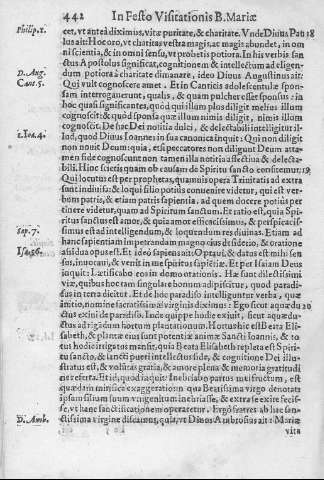 442 In Festo Visitationis B. Mariæ
Philip. 1. cet, vt antea diximus, vitæ puritate, & charitate. Vnde Diuus Pau 18
lus ait: Hoc oro, vt charitas vestra magis, ac magis abundet, in om
ni scientia, & in omni sensu, vt probetis potiora. In his verbis san
ctus Apostolus significat, cognitionem & intellectum ad eligen-
D. Aug. dum potiora à charitate dimanare, ideo Diuus Augustinus ait:
Cant. 5. Qui vult cognoscere amet. Et in Canticis adolescentulæ spon-
sam interrogauerunt, qualis, & quam pulcher esset sponsus: in
hoc quasi significantes, quòd qui illum plus diligit melius illum
cognoscit: & quòd sponsa quæ illum nimis diligit, nimis illum
cognoscit. De hac Dei notitia dulci, & delectabili intelligitur il-
1. Ioa. 4. lud, quod Diuus Ioannes in sua canonica inquit: Qui non diligit
non nouit Deum: quia, etsi peccatores non diligunt Deum atta-
men fide cognoscunt non tamen illa notitia affectiua & delecta-
bili. Hinc scietis quam ob causam de Spiritu sancto confitemur, 19
Qui locutus est per prophetas, quamuis opera Trinitatis ad extra
sunt indiuisa: & loqui filio potius conuenire videtur, qui est ver-
bum patris, & etiam patris sapientia. ad quem docere potius per
tinere videtur, quam ad Spiritum sanctum. Et ratio est, quia Spi-
ritus sanctus est amor, & quia amor efficacissimus, & perspicacis-
simus est ad intelligendum, & loquendum res diuinas. Etiam ad
Sap. 7. hanc sapientiam impetrandam magno eius desiderio, & oratione
assidua opus est. Et ideo sapiens ait: Optaui, & datus est mihi sen
Isa. 56. sus, inuocaui, & venit in me spiritus sapiẽtiæ. Et per Isaiam Deus
inquit: Lætificabo eos in domo orationis. Hæ sunt delectissimi
viæ, quibus hoc tam singulare bonum adipiscitur, quod paradi-
sus in terra dicitur. Et de hoc paradiso intelliguntur verba, quæ
initio, nomine sacratissimæ virginis diximus: Ego sicut aquæductus 20
ctus exiui de paradiso. Inde quippe hodie exiuit, sicut aquædu-
ctus ad rigandum hortum plantationum. Hortus hic est Beata Eli-
sabeth, & plantæ eius sunt potentiæ animæ Sancti Ioannis, & to
tus hodie irrigatus mansit, quia Beata Elisabeth repleta est Spiri-
tu sancto, & sancti pueri intellectus fide, & cognitione Dei illu-
stratus est, & voluntas gratia, & amore plena & memoria gratitudi
nis referta. Et id, quod ait: Inebriabo partus mei fructum, est
quædam mirifice exaggeratio: quæ Beatissima virgo denotat
ipsum filium suum vnigenitum inebriasse, & extra se exire fecis-
se, vt hanc sanctificationem operaretur. Ergo fratres ab hac san-
D. Amb. ctissima virgine discamus, quia, vt Diuus Ambrosius ait: Mariæ
vita